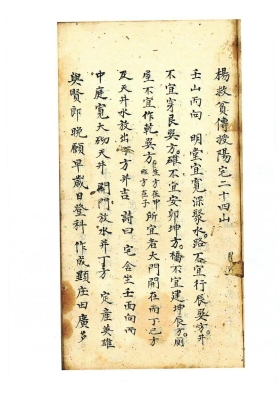 楊救貧傳授陽宅二十四山
壬山丙向 明堂宜寬深聚水路不宜行辰巽方井
不宜穿艮巽方碓不宜安卯坤方橋不宜建坤辰方厠
屋不宜作乾巽方 所宜者大門開在丙丁己方
及天井水放出 方井吉 詩曰宅舍坐壬面向丙
中庭寬大砌天井 開門放水井丁方 定產英雄
與賢郎 晚顧早歲日登科 作成顯庄田廣多